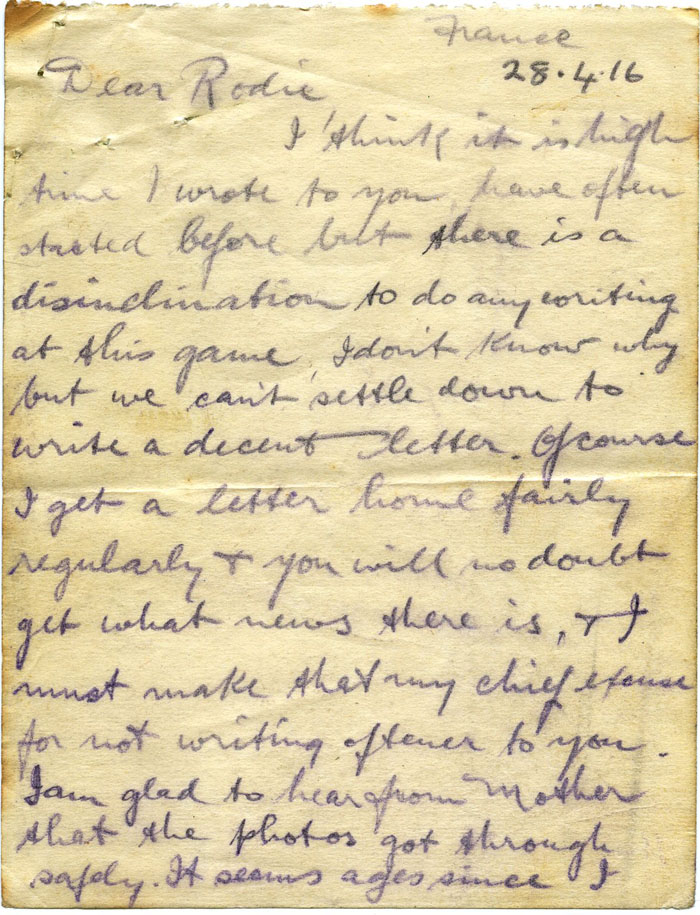 France
28.4.16
Dear Rodie
I think it is high
time I wrote to you, have often
started before but there is a
disinclination to do any writing
at this game, I don't know why
but we can't settle down to
write a decent letter. Of course
I get a letter home fairly
regularly & you will no doubt
get what news there is, & I
must make that my chief excuse
for not writing oftener to you.
I am glad to hear from Mother
that the photos got through
safely. It seems ages since I